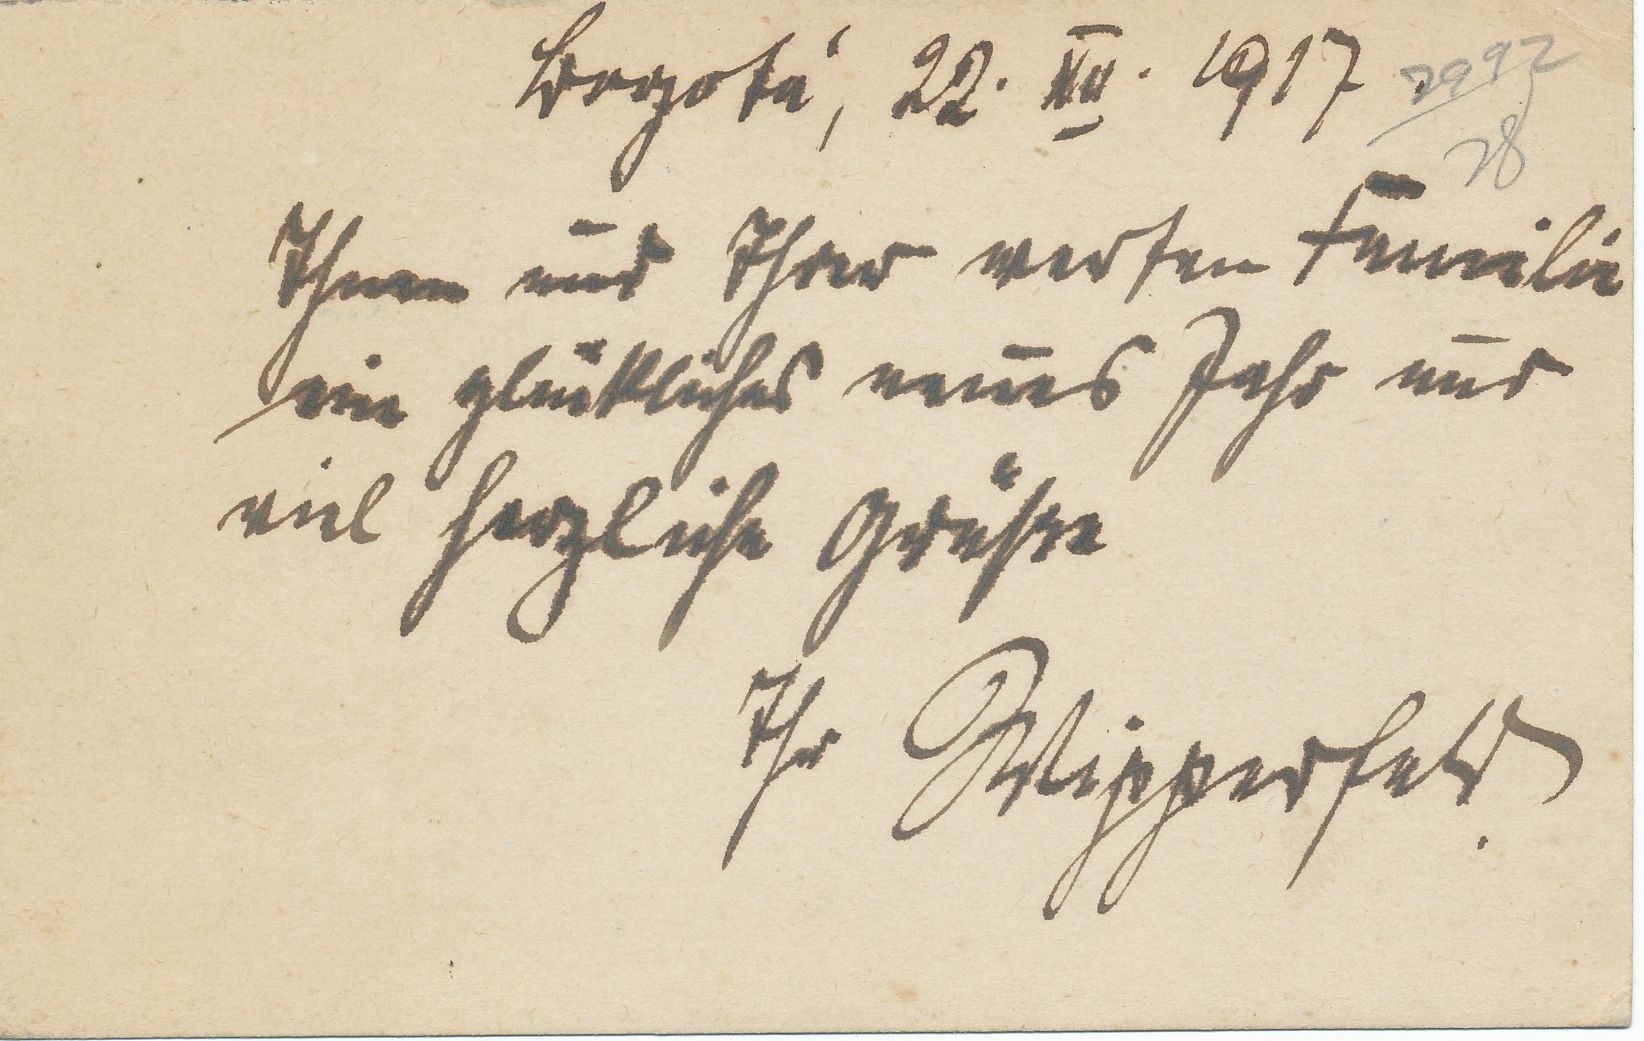 Bogotá, 22. XII. 1917
2992
28
Ihnen und Ihrer werten Familie
ein glückliches neues Jahr und
viel herzliche Grüße
Ihr Wipperfeld.